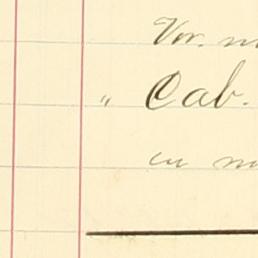 Vor. m
" Cab.
in m